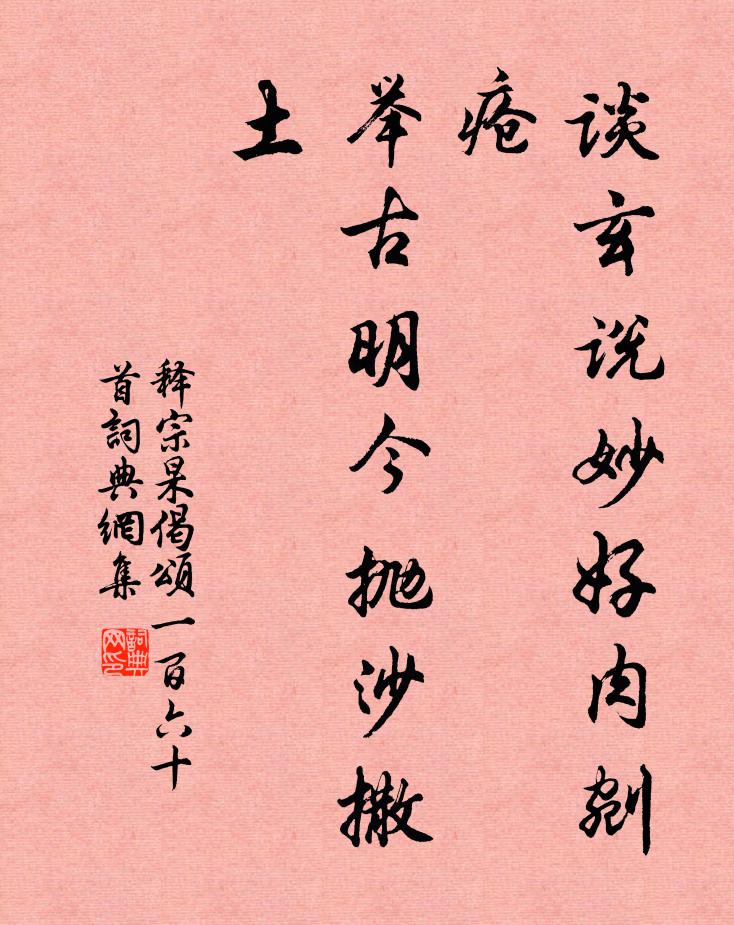 谈玄说妙好肉剜
疮
举古明今抛沙撒
土
释宗杲偈颂一百六十
首詞典網集
詞典网印